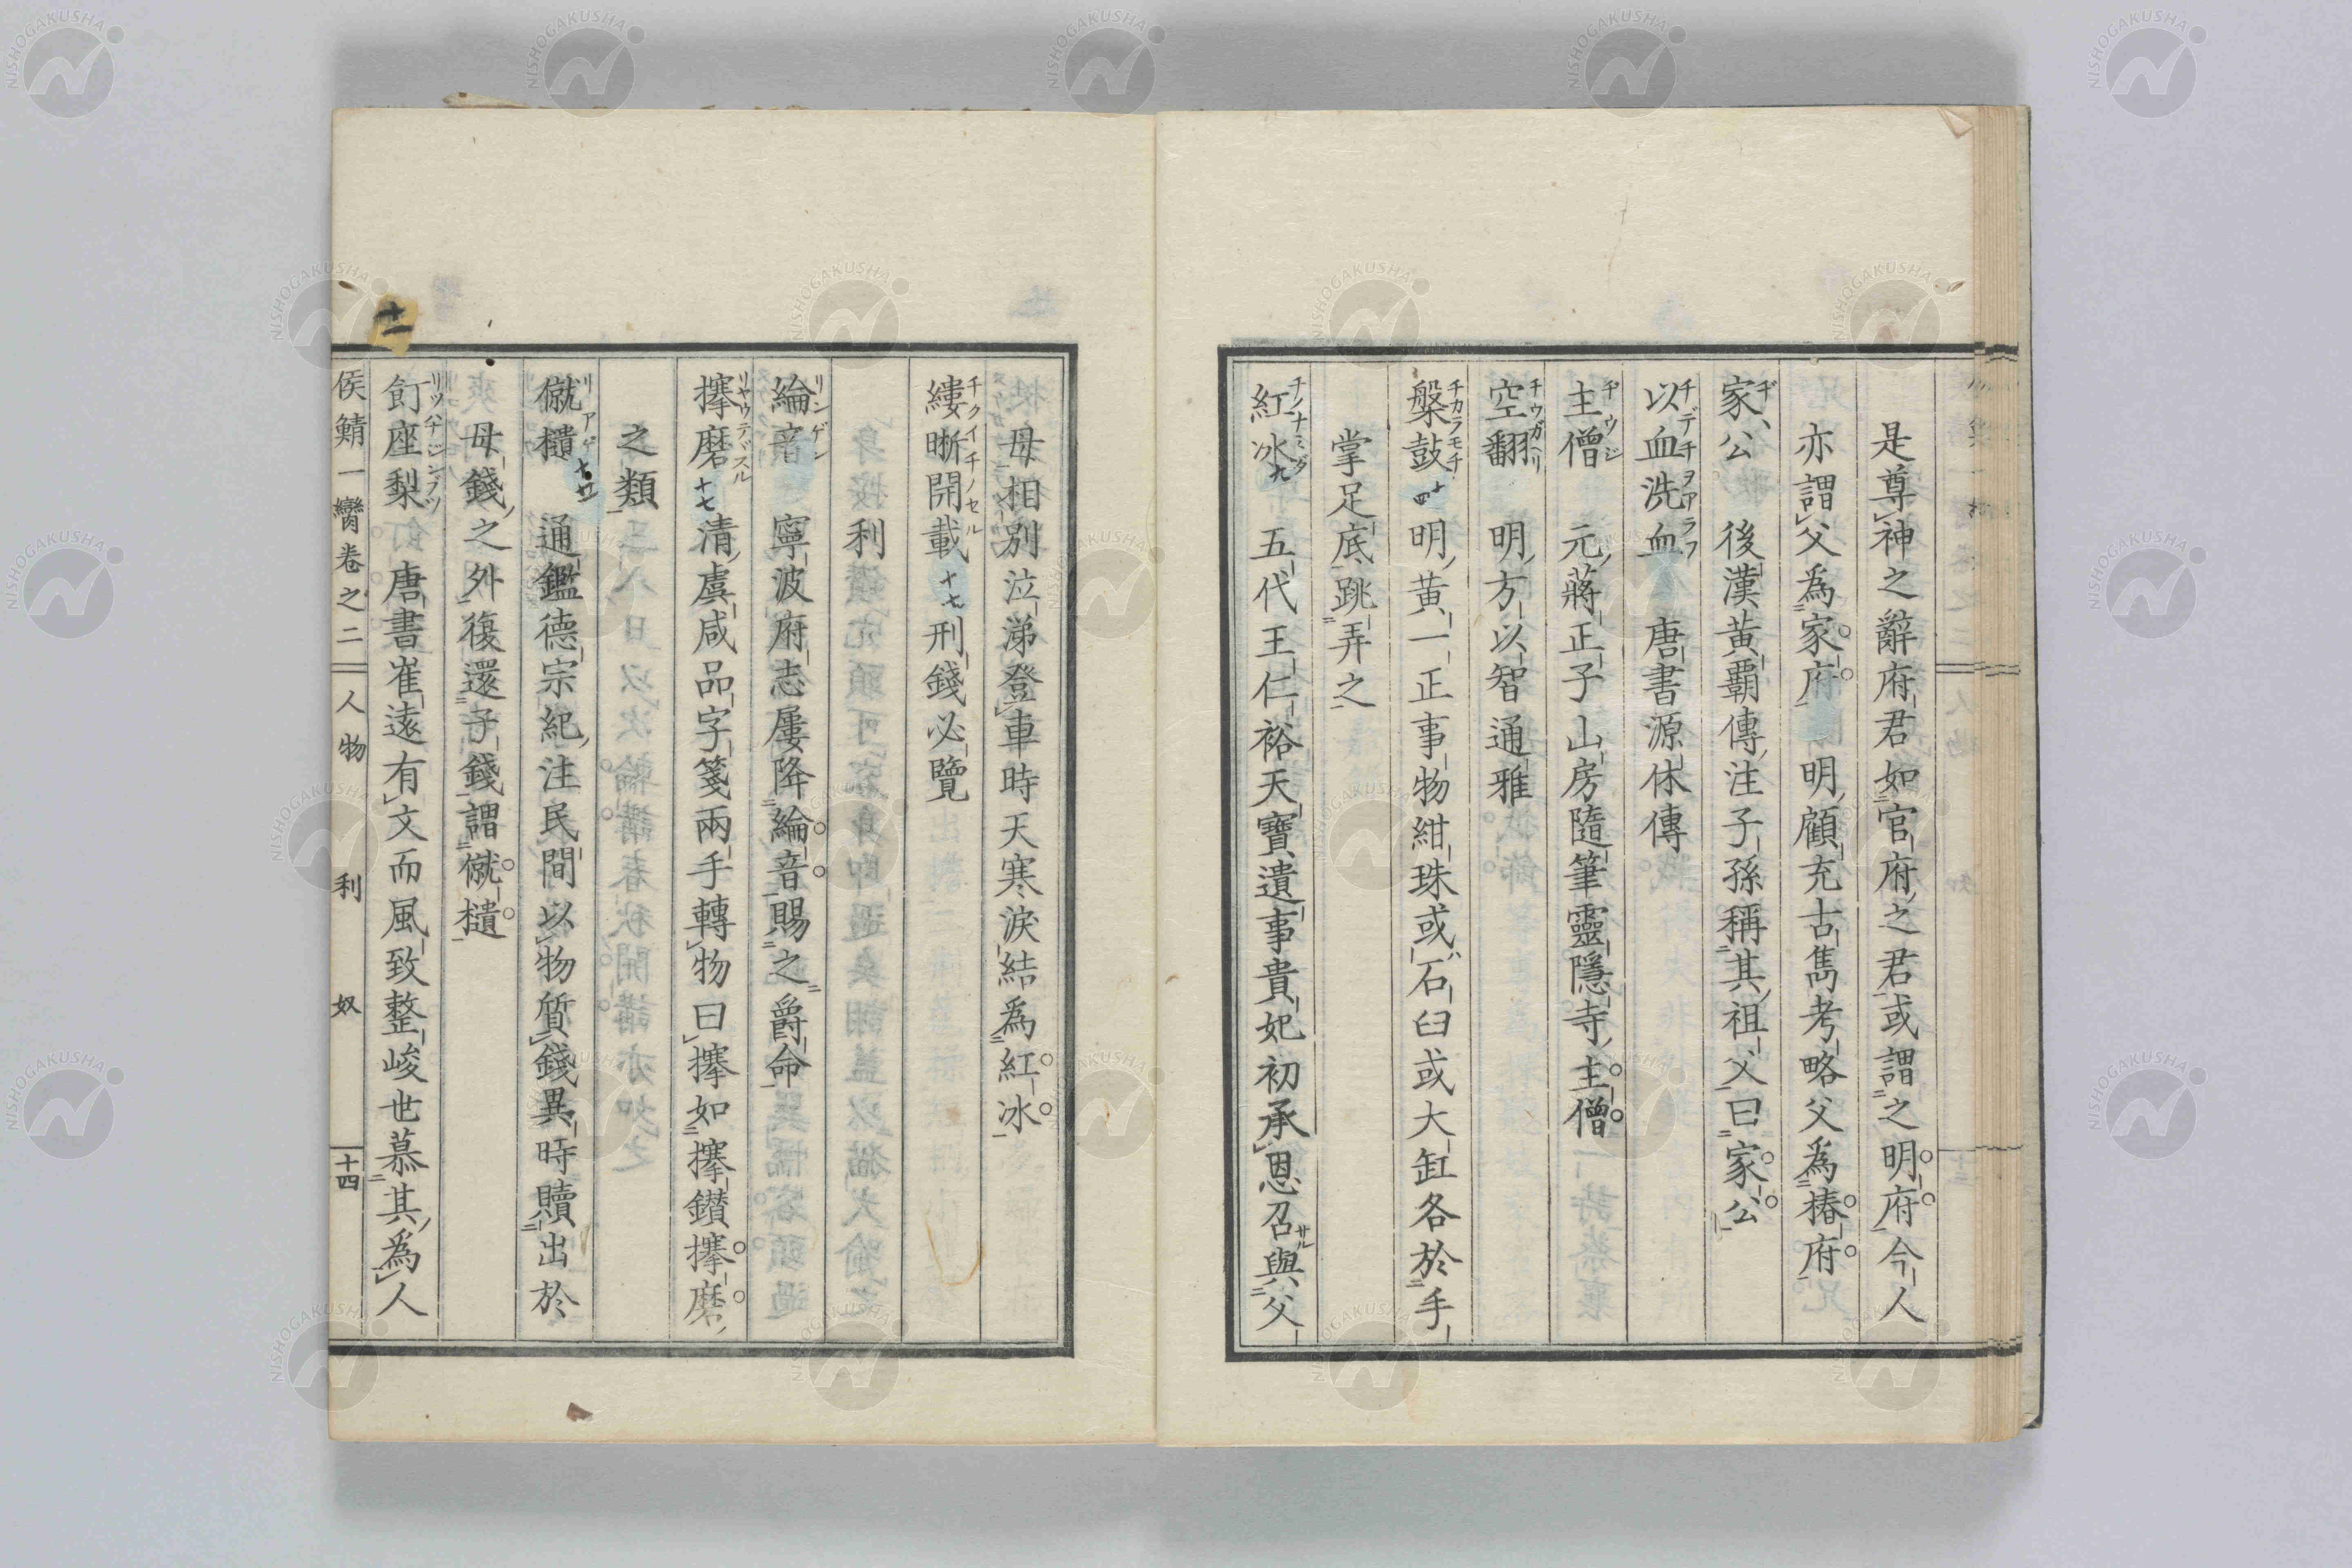 是尊神之辭府君如官府之君或謂之明府今人
亦謂父爲家府　明顧充古雋考略父爲椿府
家公　後漢黃覇傳注子孫稱其祖父曰家公
以血洗血　唐書源休傳
主僧　元蔣正子山房隨筆靈隱寺主僧
空翻　明方以智通雅
槃鼓　十四　明黃一正事物紺珠或ハ石臼或大缸各於手
掌足底跳弄之
紅冰　九　五代王仁裕天寶遺事貴妃初承恩召與父
母相別泣涕登車時天寒淚結爲紅冰
縷晰開載　十七　刑錢必覽
利
綸音　寧波府志屢降綸音賜之爵命
攆磨　十七　清虞咸品字箋兩手轉物曰攆如攆鑚攆磨
之類
僦樻　通鑑德宗紀注民間以物質錢異時贖出於
母錢之外復還子錢謂僦樻
飣座梨　唐書崔遠有文而風致整峻世慕其爲人
侯鯖一臠卷之二　人物　利　奴　十四
十二
NISHOGAKUSHA